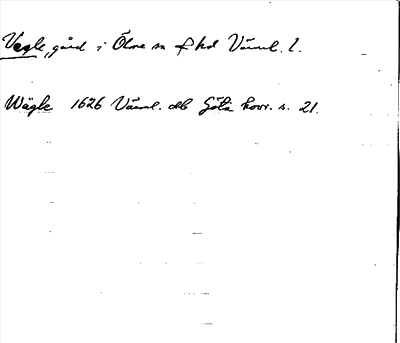 Vegle, gård i Ölme sn o hd Värml. l.
Wägle 1626 Värml. db Göta hovr. s. 21.